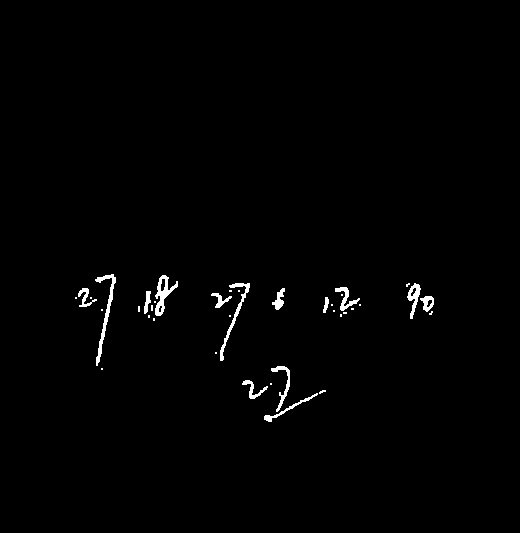 27 18 27 6 12 90
27